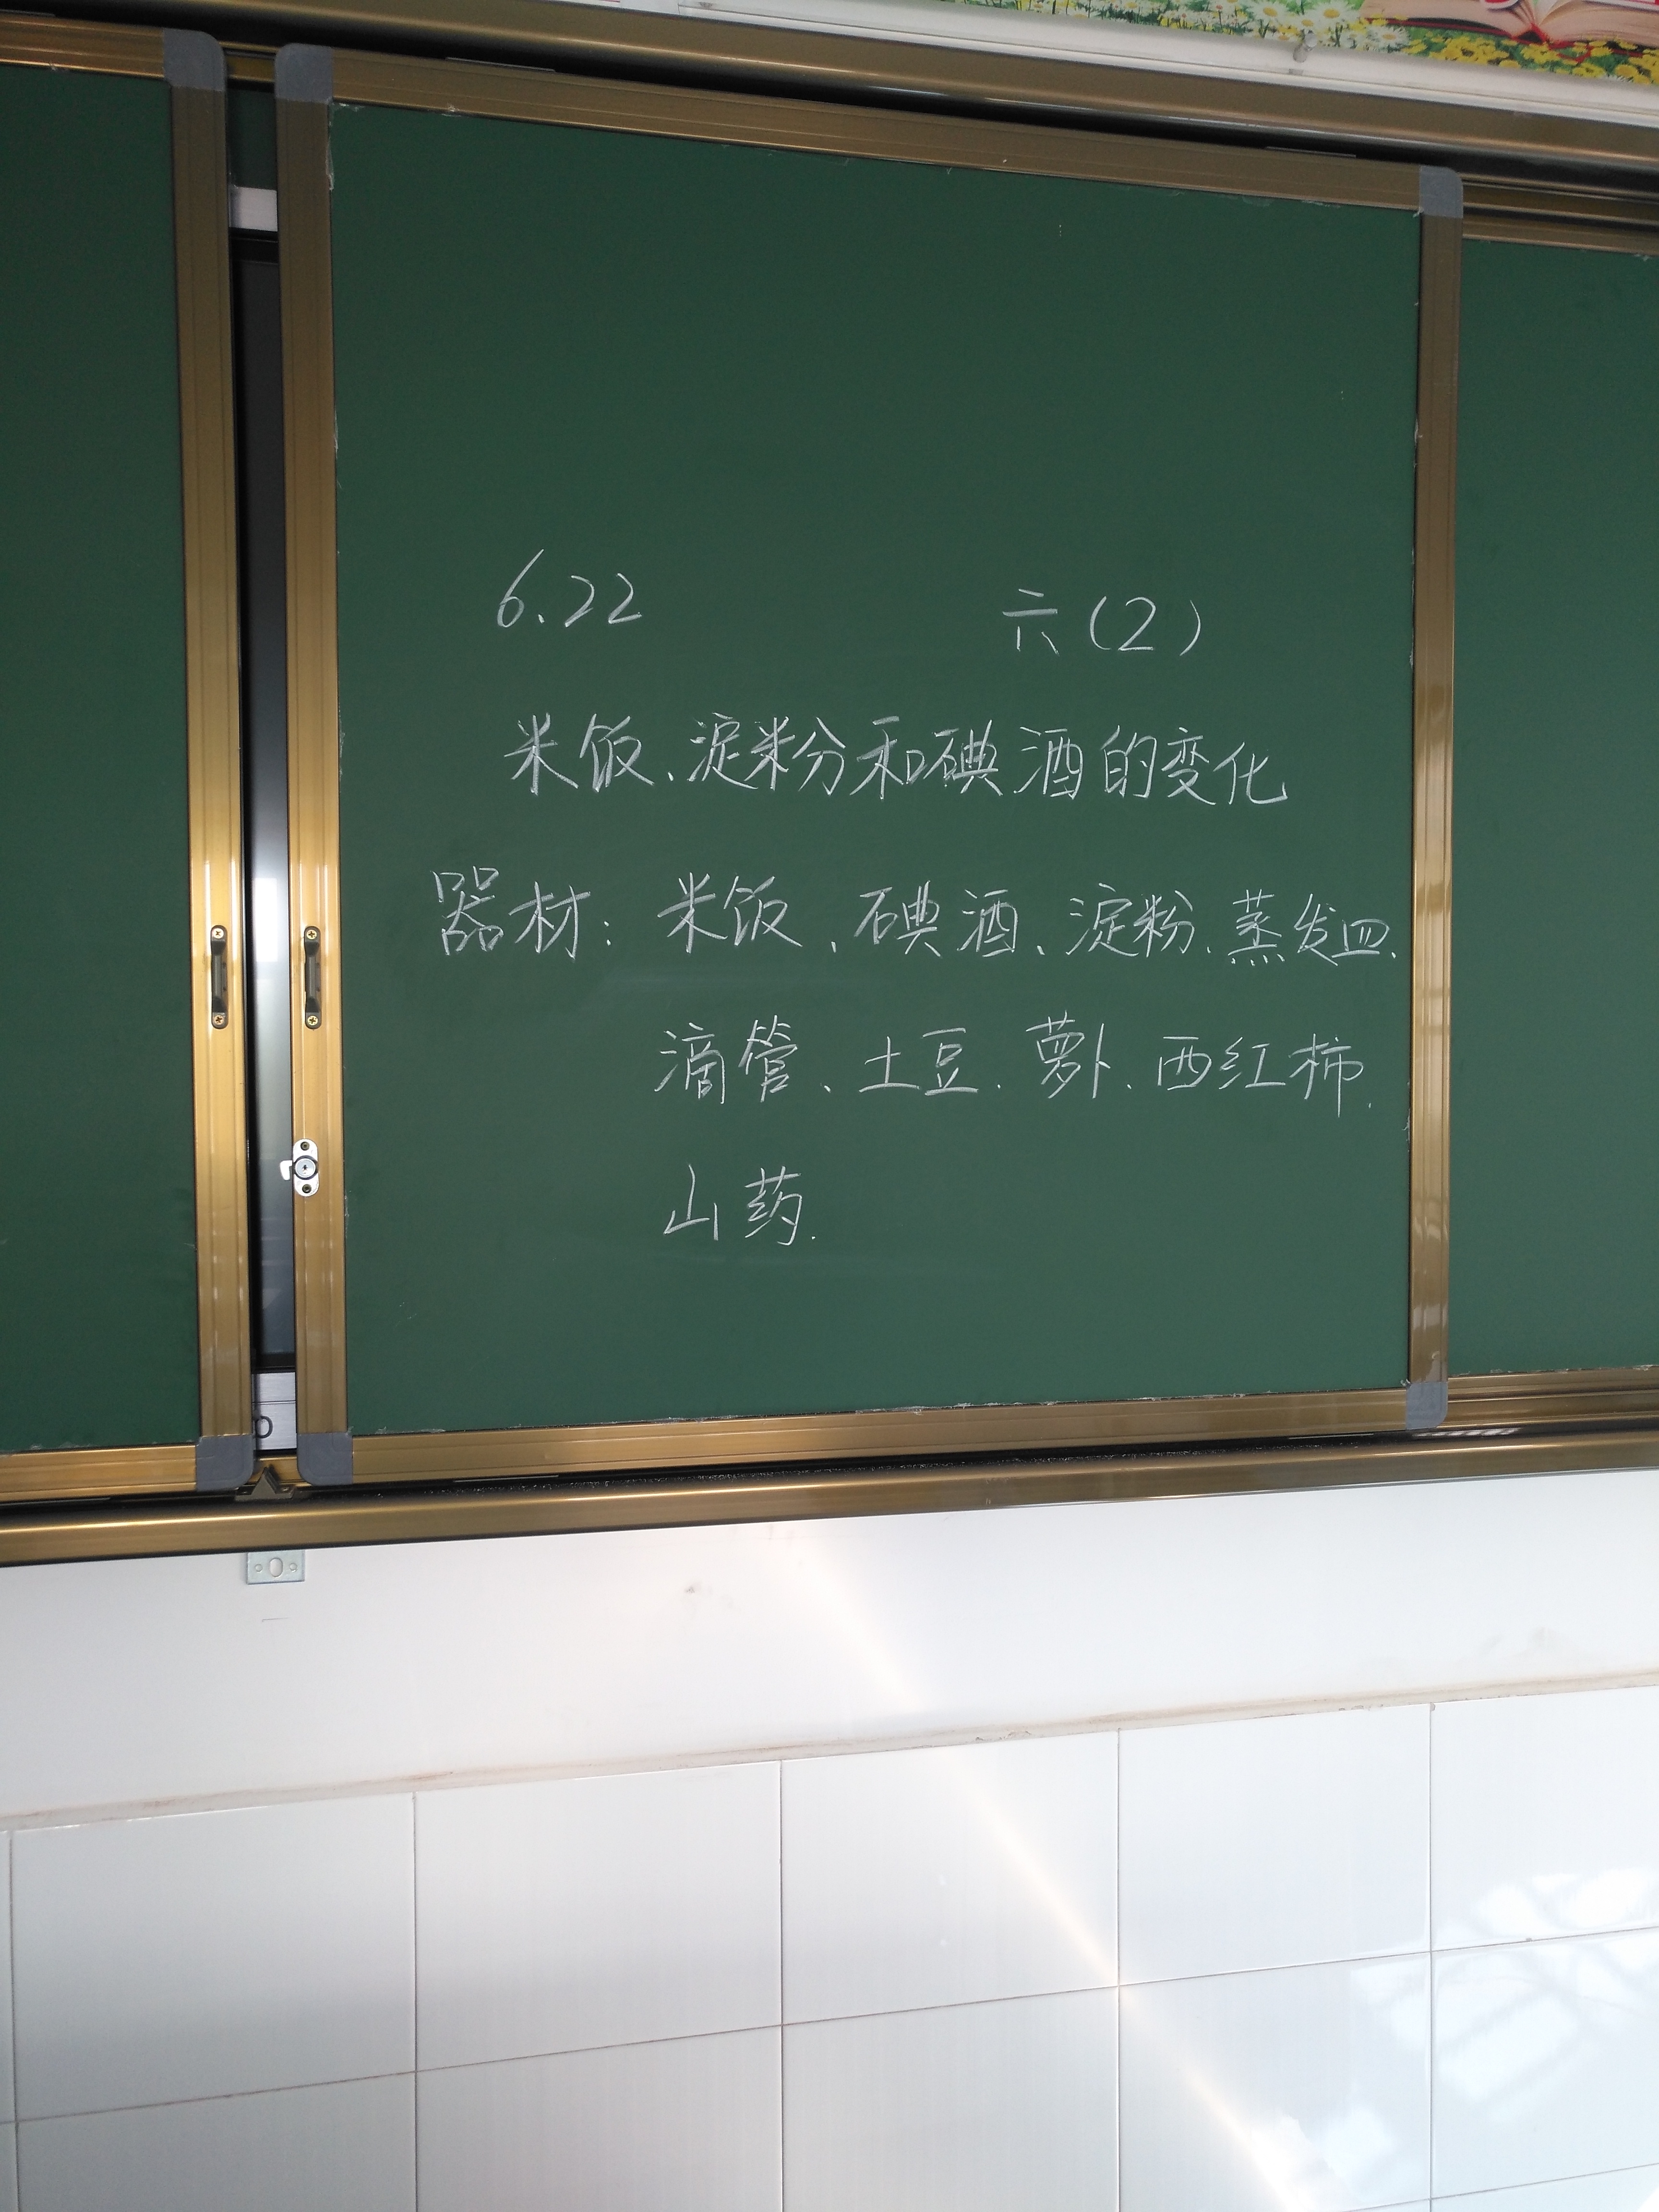 6.22 六(2)
米饭、淀粉和碘酒的变化
器材：米饭、碘酒、淀粉、蒸发皿、
滴管、土豆、萝卜、西红柿、
山药.